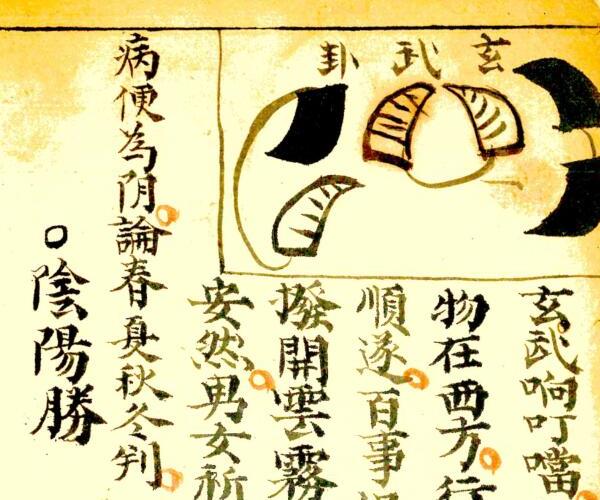 玄武卦
玄武响叮噹
物在西方行
順逐百事
撥開雲霧
安然男女祈
病便為阴論春夏秋冬判
○陰陽勝